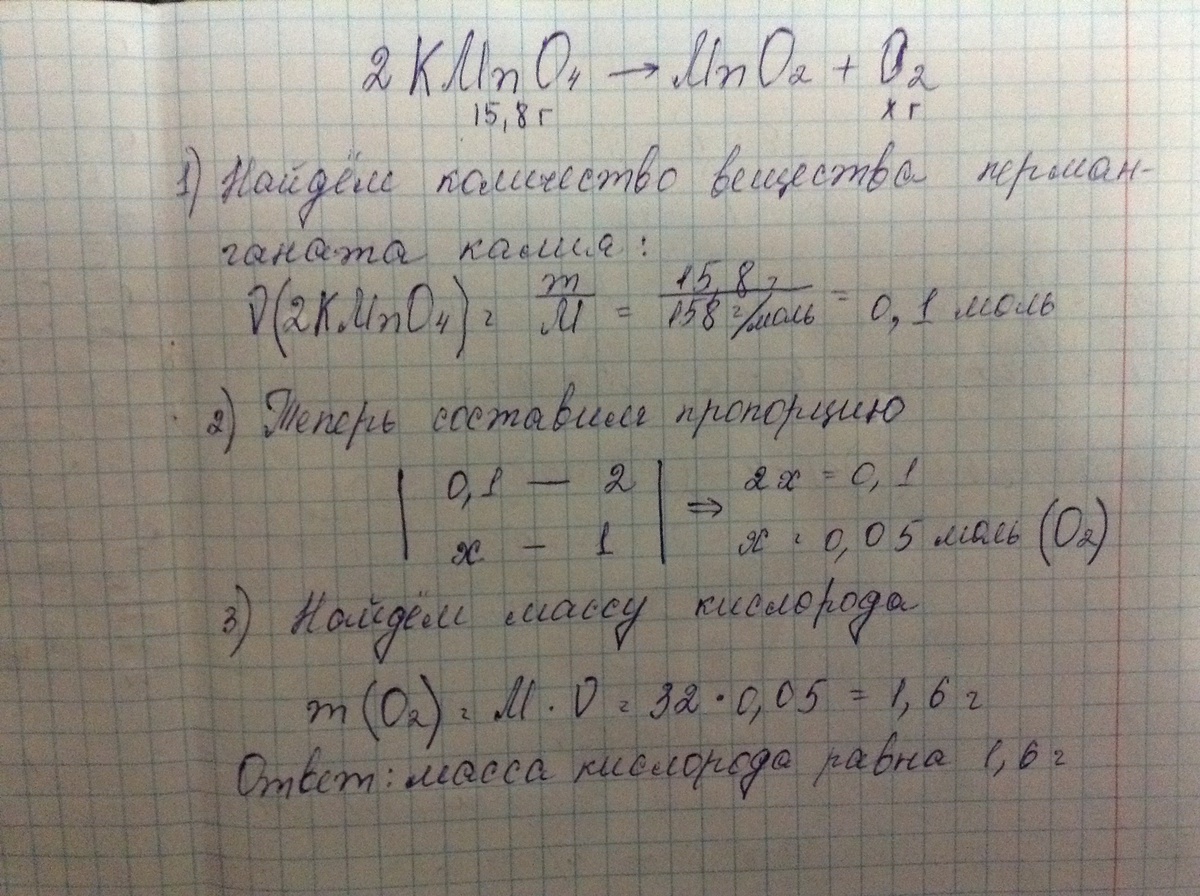 2KMnO₄ → MnO₂ + O₂
15,8 г х г
1) Найдём количество вещества перман-
ганата калия:
ν(2KMnO₄) = m/M = 15,8 г/158 г/моль = 0,1 моль
2) Теперь составим пропорцию
| 0,1 — 2 | ⇒ 2x = 0,1
| x — 1 | x = 0,05 моль (O₂)
3) Найдём массу кислорода
m(O₂) = M · ν = 32 · 0,05 = 1,6 г
Ответ: масса кислорода равна 1,6 г